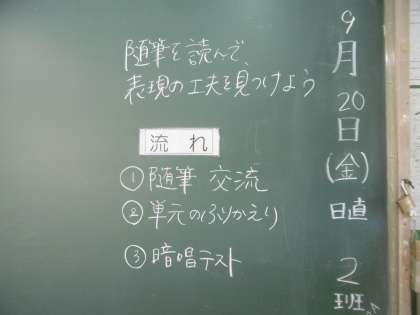 随筆を読んで、
表現の工夫を見つけよう
流れ
①随筆 交流
②単元のふりかえり
③暗唱テスト
9月20日(金)
日直
2班